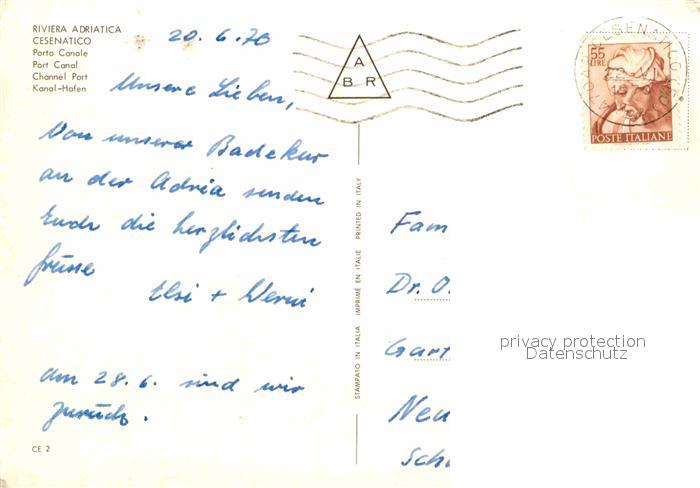 RIVIERA ADRIATICA
CESENATICO
Porto Canale
Port Canal
Channel Port
Kanal-Hafen
20. 6. 70
Unsere Lieben,
Von unserer Badekur
an der Adria senden
Euch die herzlichsten
Grüsse
Elsi + Werni
am 28. 6. sind wir
zurück.
CE 2
STAMPATO IN ITALIA IMPRIMÉ EN ITALIE PRINTED IN ITALY
A
B R
55
LIRE
POSTE ITALIANE
Fam
Dr. O.
Gart
Neu
Sch
privacy protection
Datenschutz